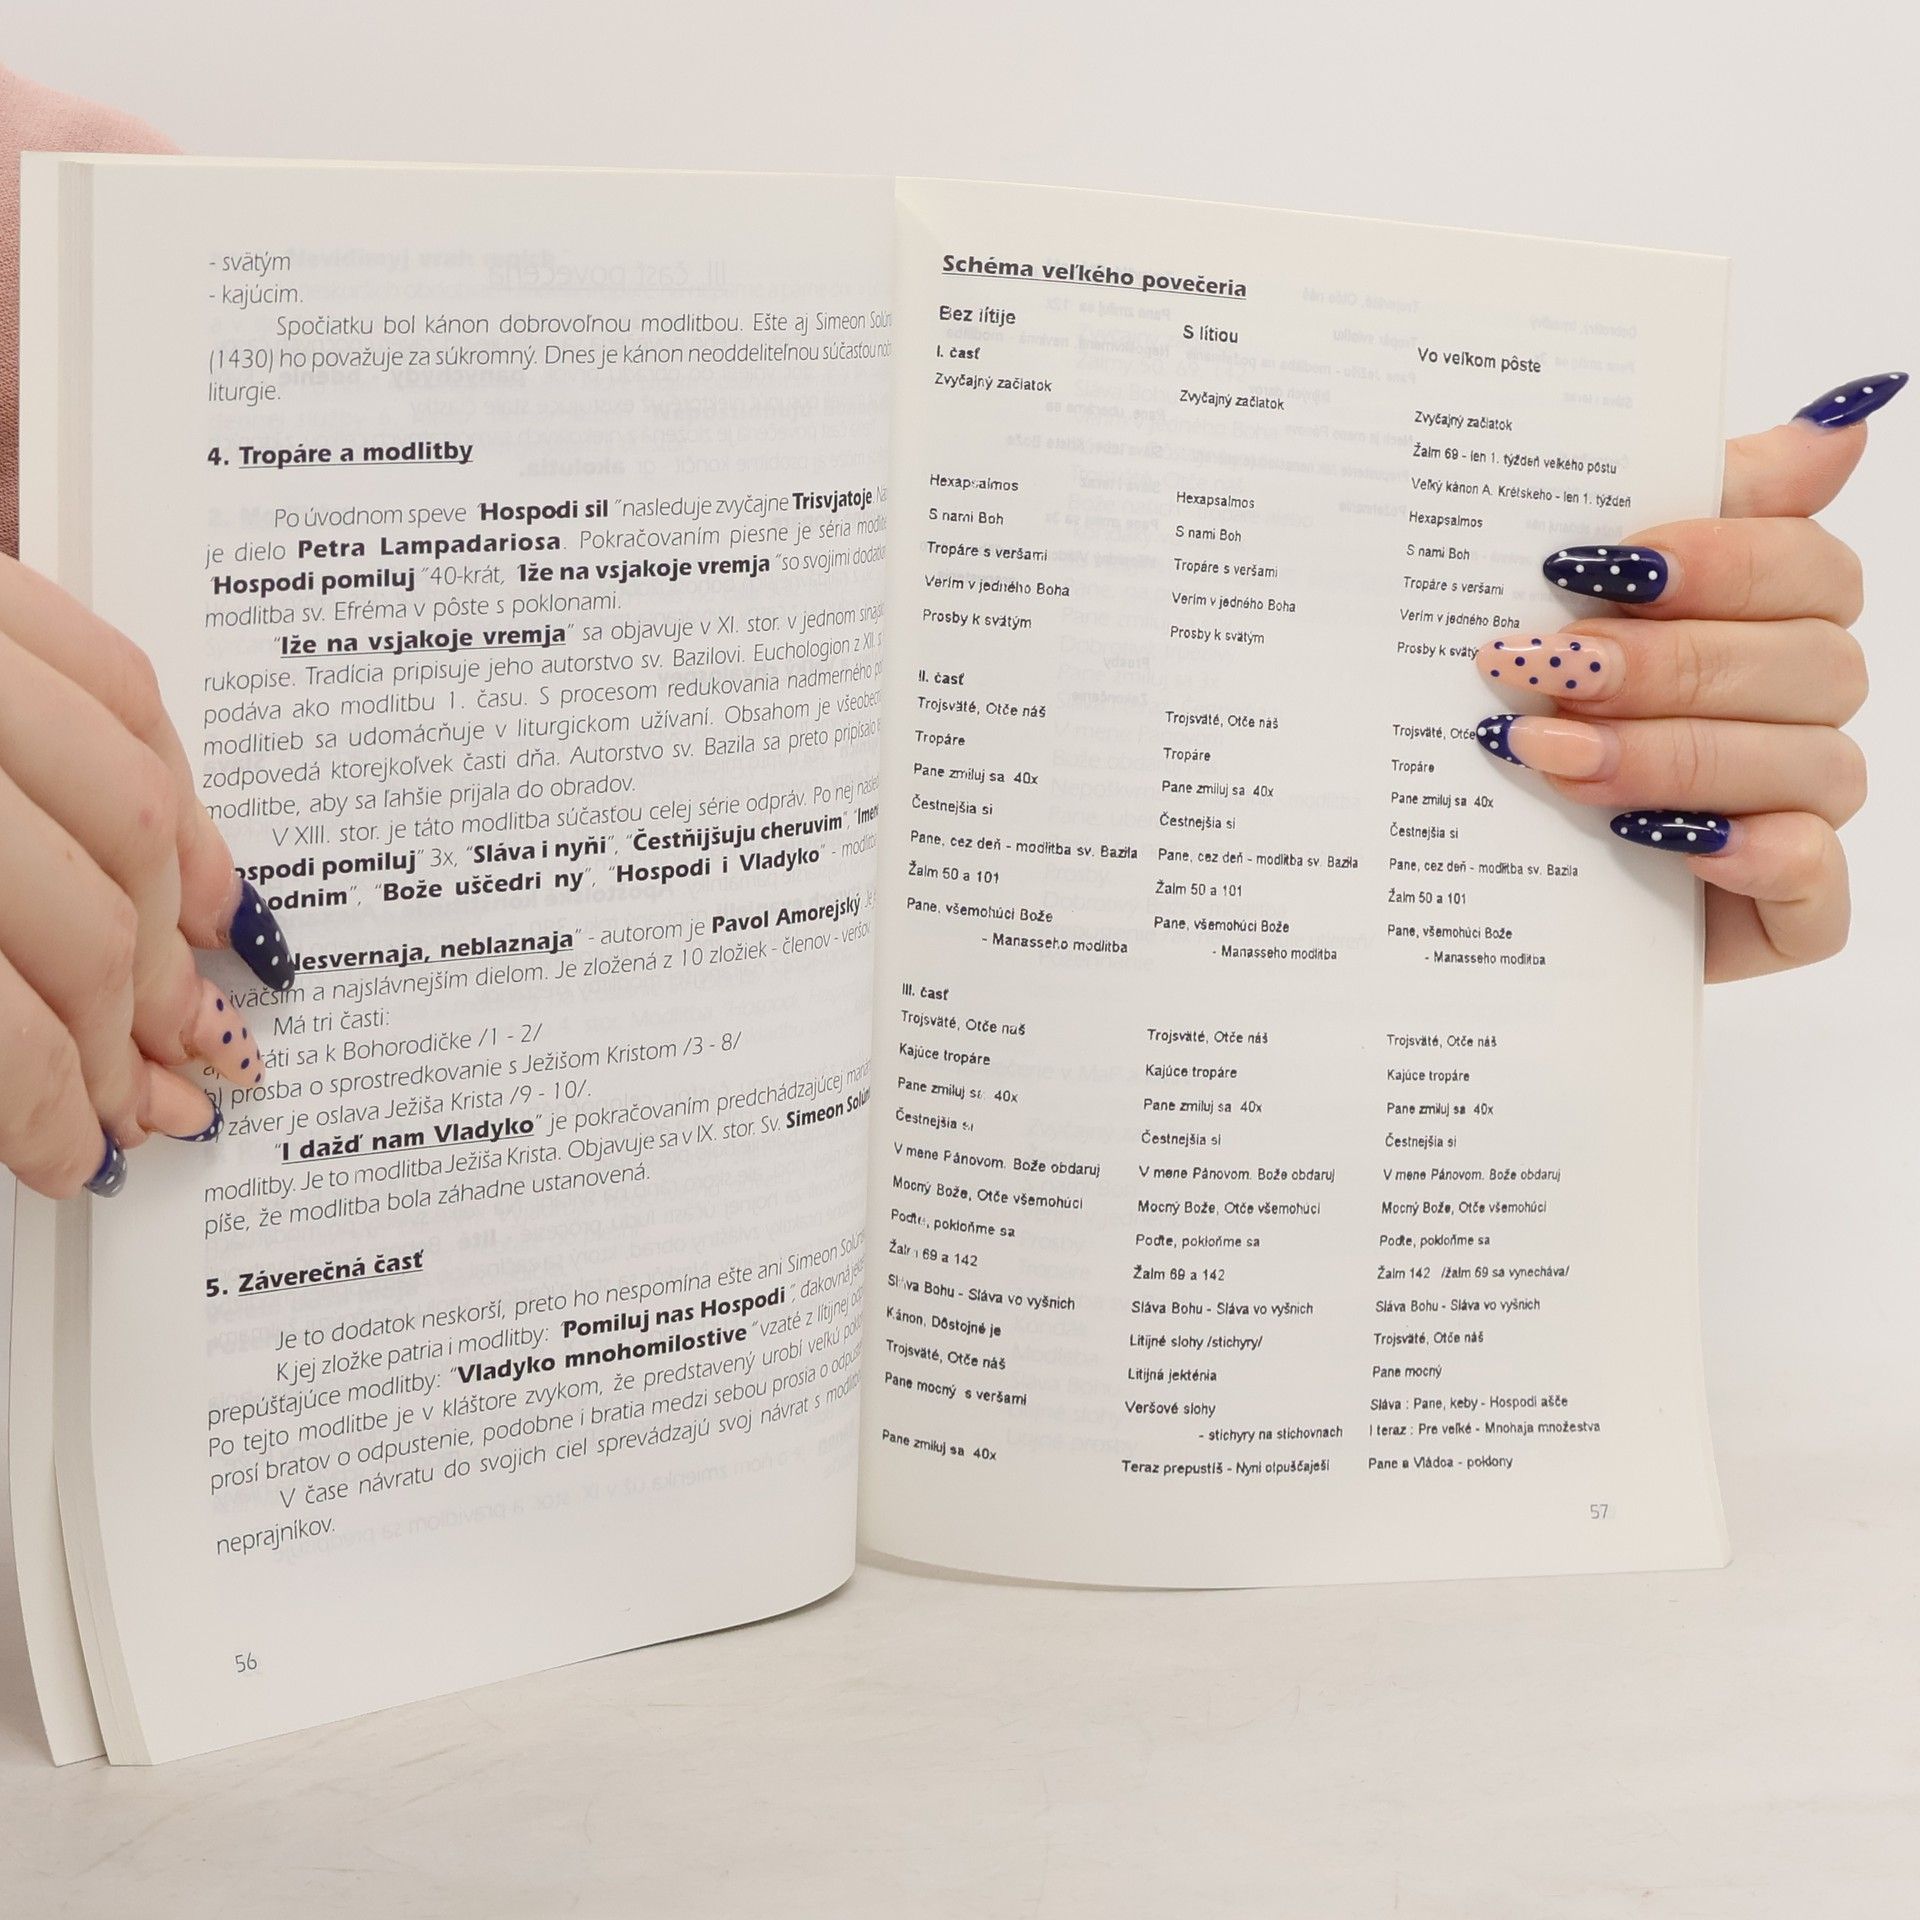 - svätým
- kajúcim.
Spočiatku bol kánon dobrovoľnou modlitbou. Ešte aj Simeon
(1430) ho považuje za súkromný. Dnes je kánon neoddeliteľnou súčasťou
liturgie.
4. Tropáre a modlitby
Po úvodnom speve "Hospodi sil" nasleduje zvyčajne Trisvjatoje.
je dielo Petra Lampadariosa. Pokračovaním piesne je séria
"Hospodi pomiluj" 40-krát, "Iže na vsjakoje vremja" so svojimi
modlitba sv. Efréma v pôste s poklonami.
"Iže na vsjakoje vremja" sa objavuje v XI. stor. v jednom
rukopise. Tradícia pripisuje jeho autorstvo sv. Bazilovi. Euchologion z XII.
podáva ako modlitbu 1. času. S procesom redukovania nadmerného
modlitieb sa udomácňuje v liturgickom užívaní. Obsahom je
zodpovedá ktorejkoľvek časti dňa. Autorstvo sv. Bazila sa preto
modlitbe, aby sa ľahšie prijala do obradov.
V XIII. stor. je táto modlitba súčasťou celej série odpráv. Po nej
pomiluj" 3x, "Sláva i nyňi", "Čestňijšuju cheruvim",
"Bože uščedri ny", "Hospodi i Vladyko" -
neblaznaja" - autorom je Pavol Amorejský.
a najslávnejším dielom. Je zložená z 10 zložiek - členov -
Má tri časti:
sa k Bohorodičke /1 - 2/
prosba o sprostredkovanie s Ježišom Kristom /3 - 8/
záver je oslava Ježiša Krista /9 - 10/.
"I dažď nam Vladyko" je pokračovaním predchádzajúcej
modlitby. Je to modlitba Ježiša Krista. Objavuje sa v IX. stor. Sv. Simeon
píše, že modlitba bola záhadne ustanovená.
5. Záverečná časť
Je to dodatok neskorší, preto ho nespomína ešte ani Simeon
K jej zložke patria i modlitby: "Pomiluj nas Hospodi",
prepúšťajúce modlitby: "Vladyko mnohomilostive" vzaté z lítijnej
Po tejto modlitbe je v kláštore zvykom, že predstavený urobí veľkú
prosí bratov o odpustenie, podobne i bratia medzi sebou prosia o
V čase návratu do svojich ciel sprevádzajú svoj návrat s
neprajníkov.
56
Schéma veľkého povečeria
Bez lítije
I. časť
Zvyčajný začiatok
Hexapsalmos
S nami Boh
Tropáre s veršami
Verím v jedného Boha
Prosby k svätým
II. časť
Trojsväté, Otče náš
Tropáre
Pane zmiluj sa 40x
Čestnejšia si
Pane, cez deň - modlitba sv. Bazila
Žalm 50 a 101
Pane, všemohúci Bože
- Manasseho modlitba
III. časť
Trojsväté, Otče náš
Kajúce tropáre
Pane zmiluj sa 40x
Čestnejšia si
V mene Pánovom. Bože obdaruj
Mocný Bože, Otče všemohúci
Poďte, pokloňme sa
Žalm 69 a 142
Sláva Bohu - Sláva vo vyšnich
Kánon, Dôstojné je
Trojsväté, Otče náš
Pane mocný s veršami
Pane zmiluj sa 40x
S lítiou
Zvyčajný začiatok
Hexapsalmos
S nami Boh
Tropáre s veršami
Verím v jedného Boha
Prosby k svätým
Trojsväté, Otče náš
Tropáre
Pane zmiluj sa 40x
Čestnejšia si
Pane, cez deň - modlitba sv. Bazila
Žalm 50 a 101
Pane, všemohúci Bože
- Manasseho modlitba
Trojsväté, Otče náš
Kajúce tropáre
Pane zmiluj sa 40x
Čestnejšia si
V mene Pánovom. Bože obdaruj
Mocný Bože, Otče všemohúci
Poďte, pokloňme sa
Žalm 69 a 142
Sláva Bohu - Sláva vo vyšnich
Litijné slohy /stichyry/
Litijná jekténia
Veršové slohy
- stichyry na stichovnach
Teraz prepustíš - Nyni otpuščaješi
Vo veľkom pôste
Zvyčajný začiatok
Žalm 69 - len 1. týždeň veľkého pôstu
Veľký kánon A. Krétskeho - len 1. týždeň
Hexapsalmos
S nami Boh
Tropáre s veršami
Verím v jedného Boha
Prosby k
Trojsväté, Otče
Tropáre
Pane zmiluj sa 40x
Čestnejšia si
Pane, cez deň - modlitba sv. Bazila
Žalm 50 a 101
Pane, všemohúci Bože
- Manasseho modlitba
Trojsväté, Otče náš
Kajúce tropáre
Pane zmiluj sa 40x
Čestnejšia si
V mene Pánovom. Bože obdaruj
Mocný Bože, Otče všemohúci
Poďte, pokloňme sa
Žalm 142 /žalm 69 sa vynecháva/
Sláva Bohu - Sláva vo vyšnich
Trojsväté, Otče náš
Pane mocný
Sláva : Pane, keby - Hospodi ašče
I teraz : Pre veľké - Mnohaja množestva
Pane a Vládca - poklony
57